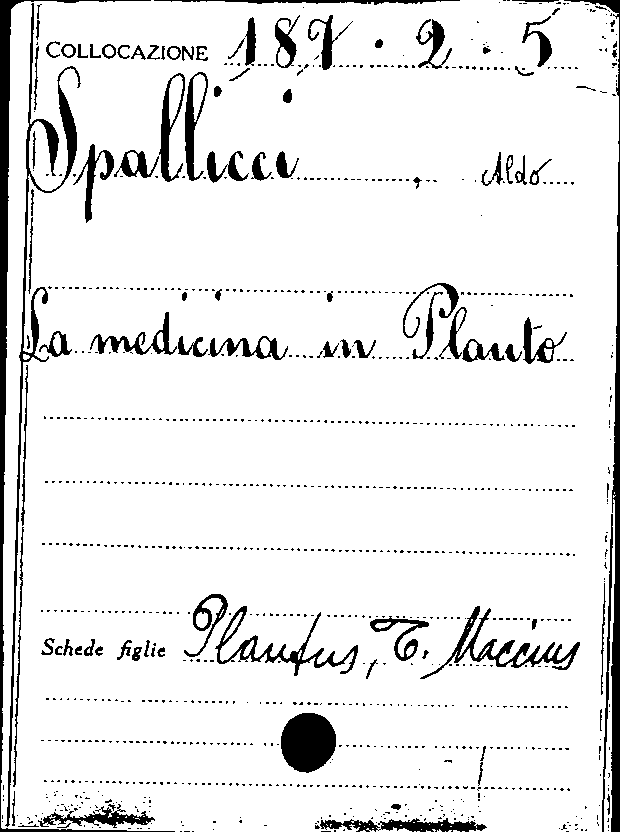 COLLOCAZIONE 187.2.5
Spallicci, Aldo
La medicina in Plauto
Schede figlie Plautus, T. Maccius